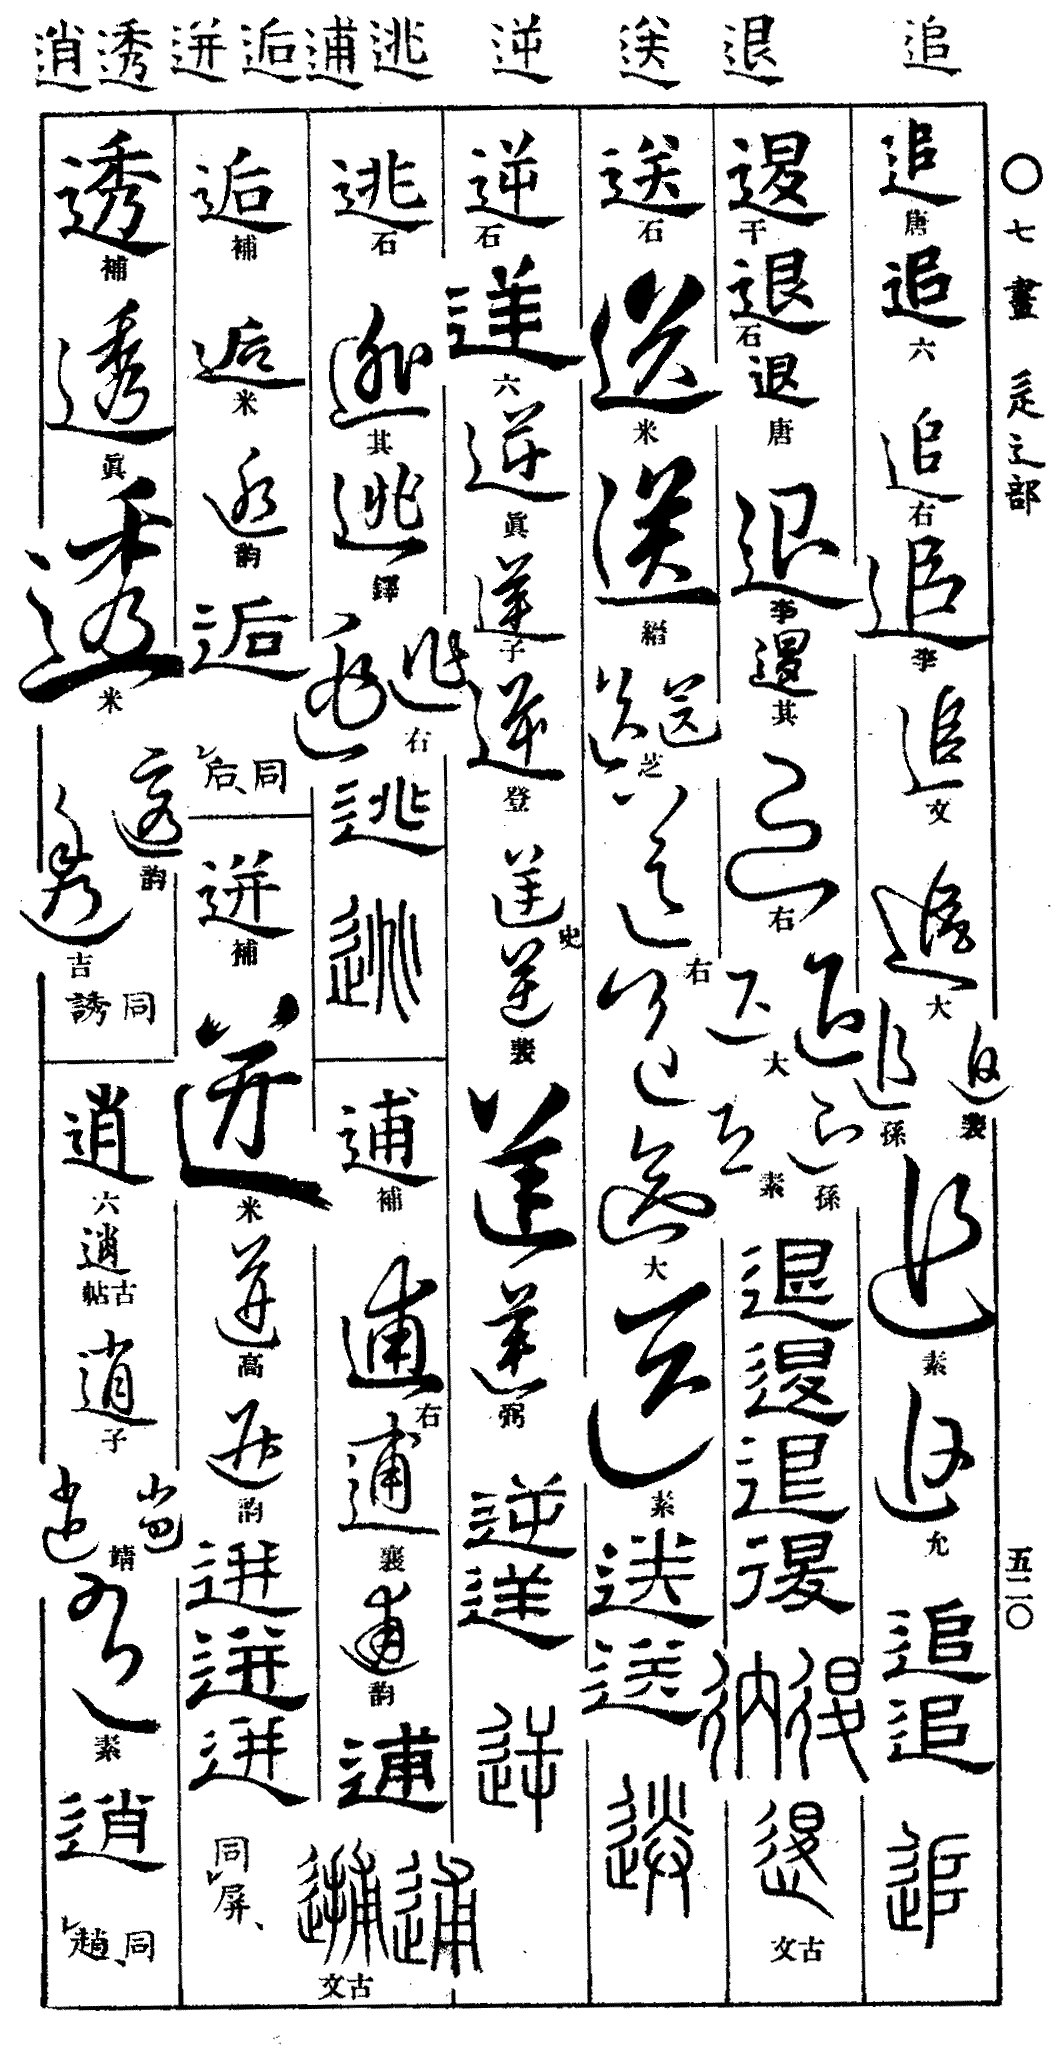 〇七畫 辵之部
五二〇
追 退 送 逆 逃 逋 逅 迸 透 逍
追 唐
追 六
追 右
追 李
追 文
追 大
追 孫
追 裴
追 素
追 允
追
追
追
退 干
退 石
退 唐
退 李
退 其
退 右
退 大
退 素
退 孫
退
退
退
古文
送 石
送 米
送 縉
送 芝
送 右
送 大
送 素
送
送
送
逆 石
逆 六
逆 眞
逆 子
逆 登
逆 史
逆 裴
逆 弼
逆
逆
逆
逃 石
逃 其
逃 鐸
逃 右
逃
逃
逋 補
逋 右
逋 襄
逋 韵
逋
逋
古文
逅 補
逅 米
逅 韵
逅
同后、
迸 補
迸 米
迸 高
迸 韵
迸
迸
迸
同屏、
透 補
透 眞
透 米
透 韵
透 吉
同誘
逍 六
逍 古帖
逍 子
逍 靖
逍 素
逍
同趙、